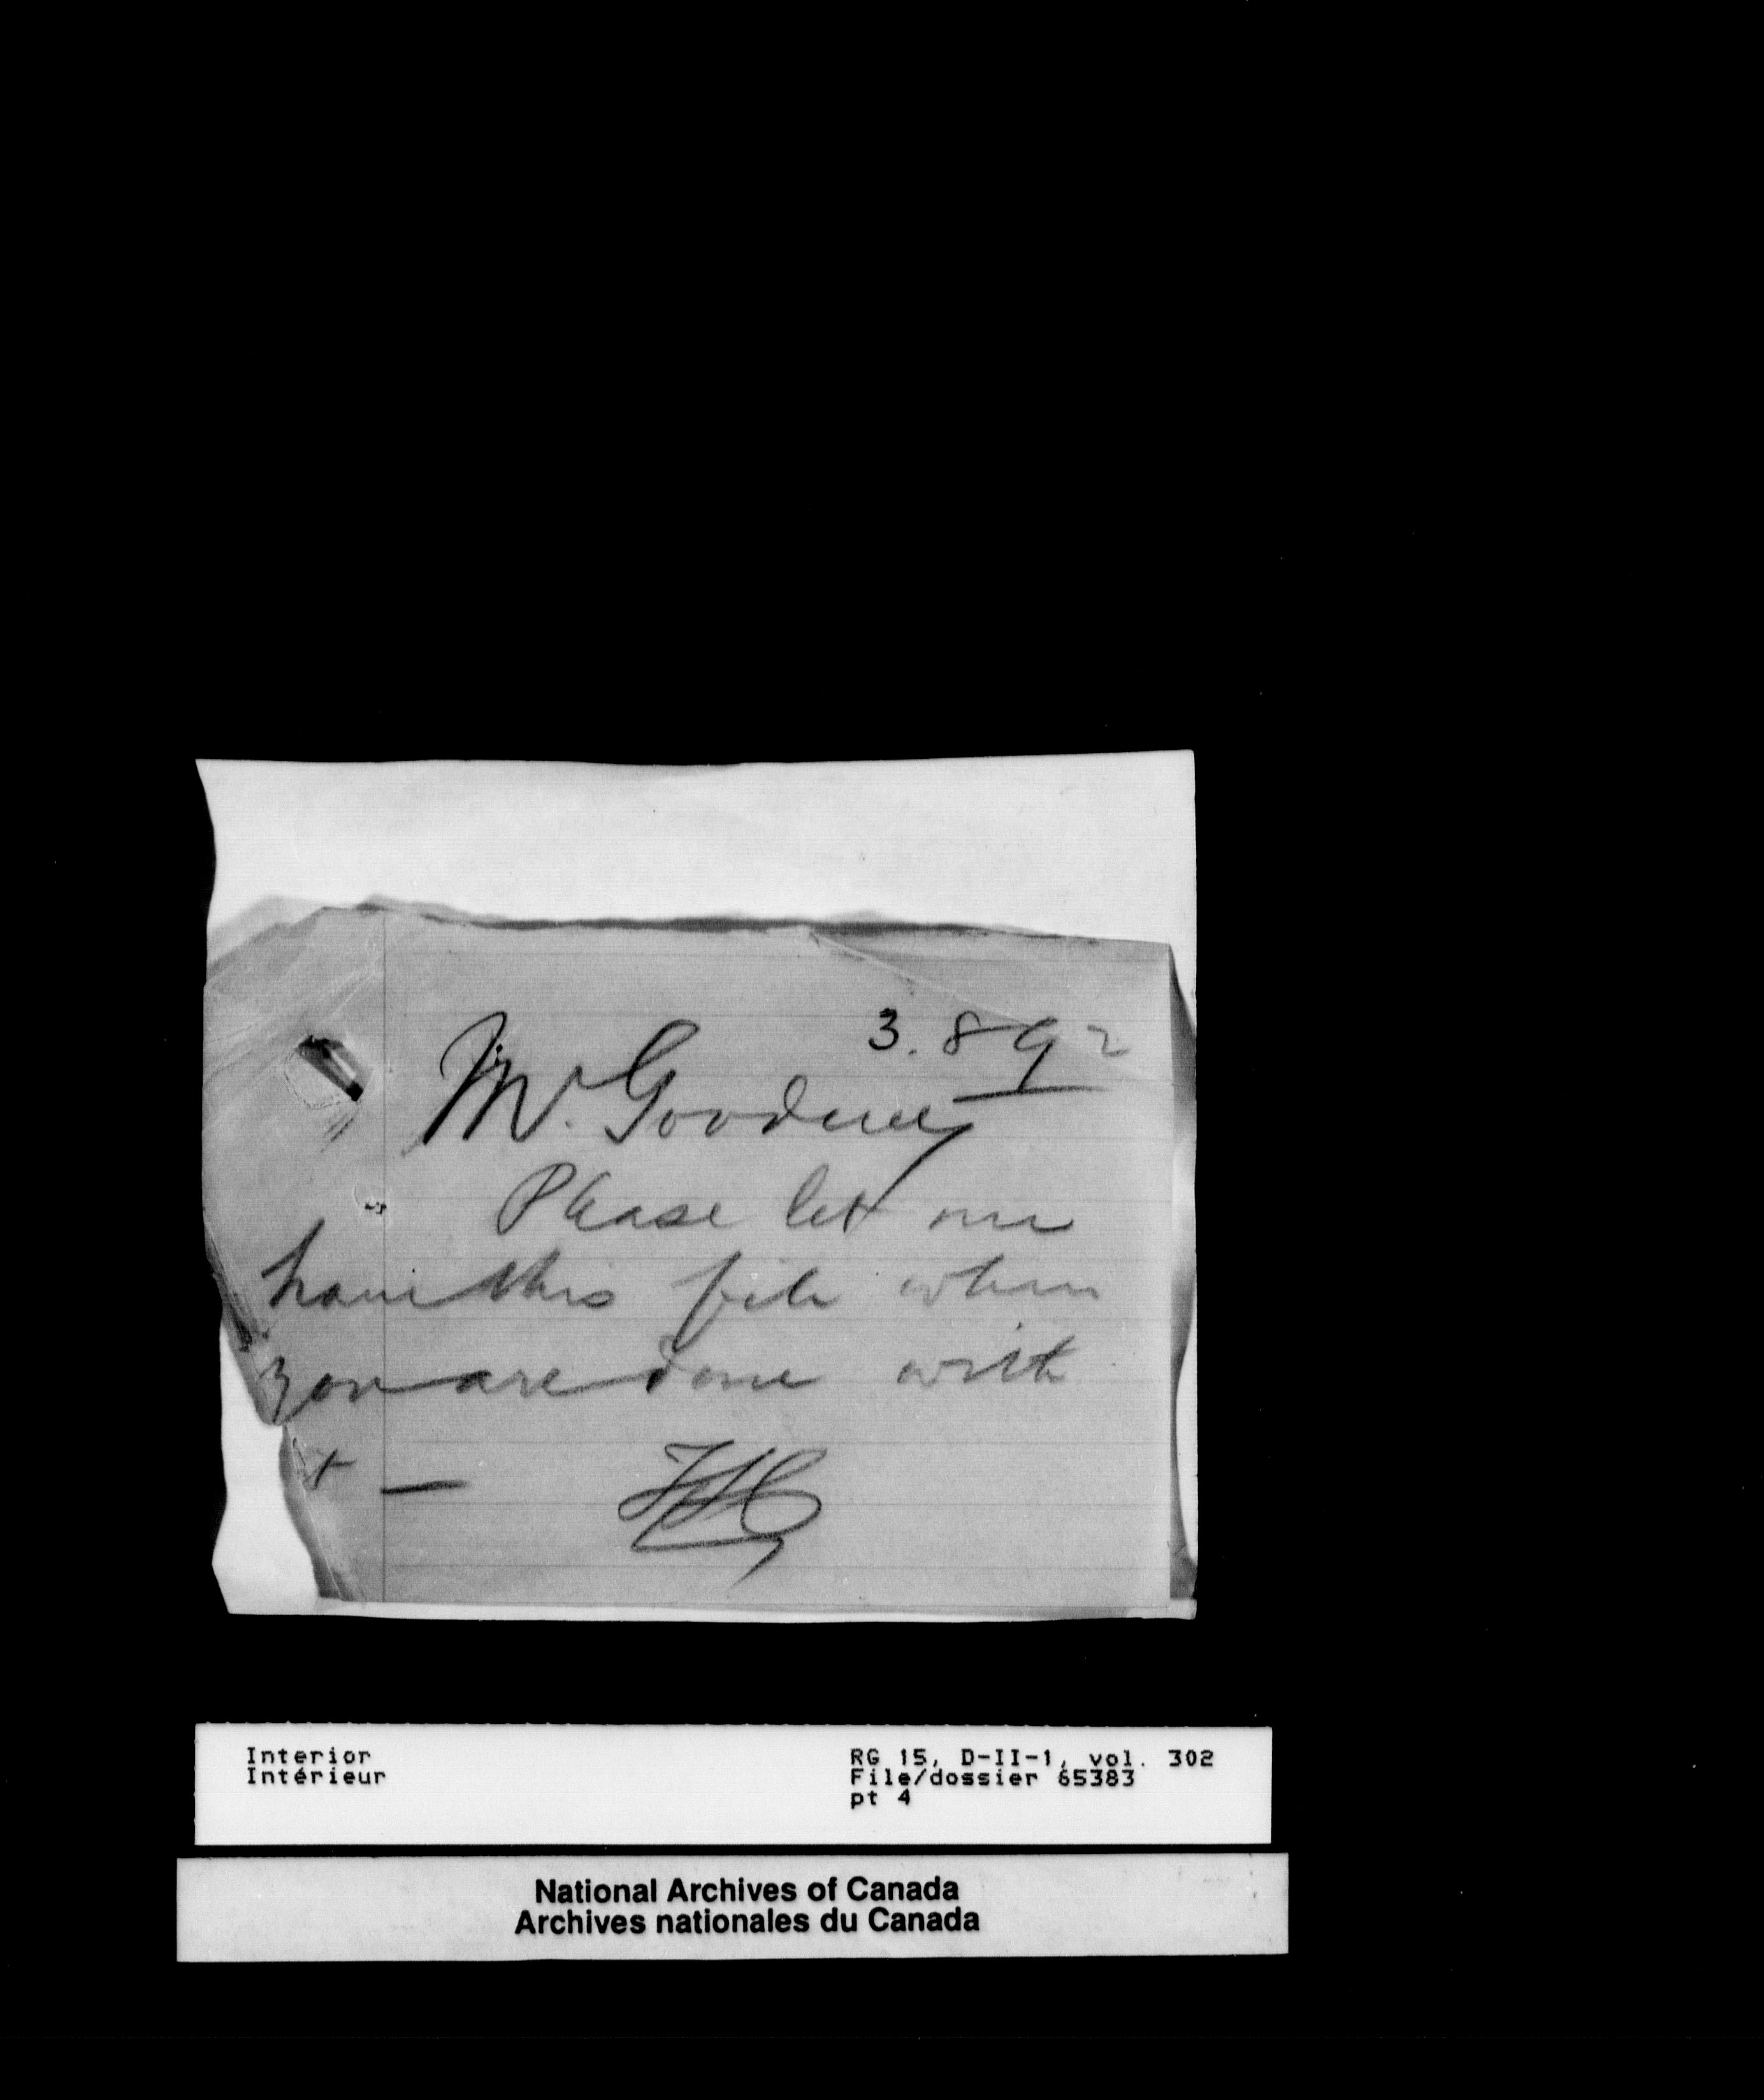 3.8 92
Mr. Goodeve
Please let me
have this file when
you are done with
it —
Interior
Intérieur
RG 15, D-II-1, vol. 302
File/dossier 65383
pt 4
National Archives of Canada
Archives nationales du Canada